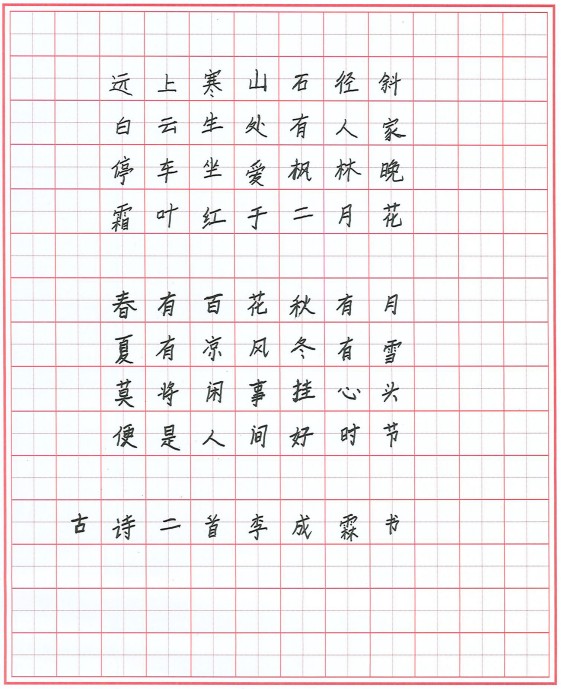 远上寒山石径斜
白云生处有人家
停车坐爱枫林晚
霜叶红于二月花
春有百花秋有月
夏有凉风冬有雪
莫将闲事挂心头
便是人间好时节
古诗二首李成霖书